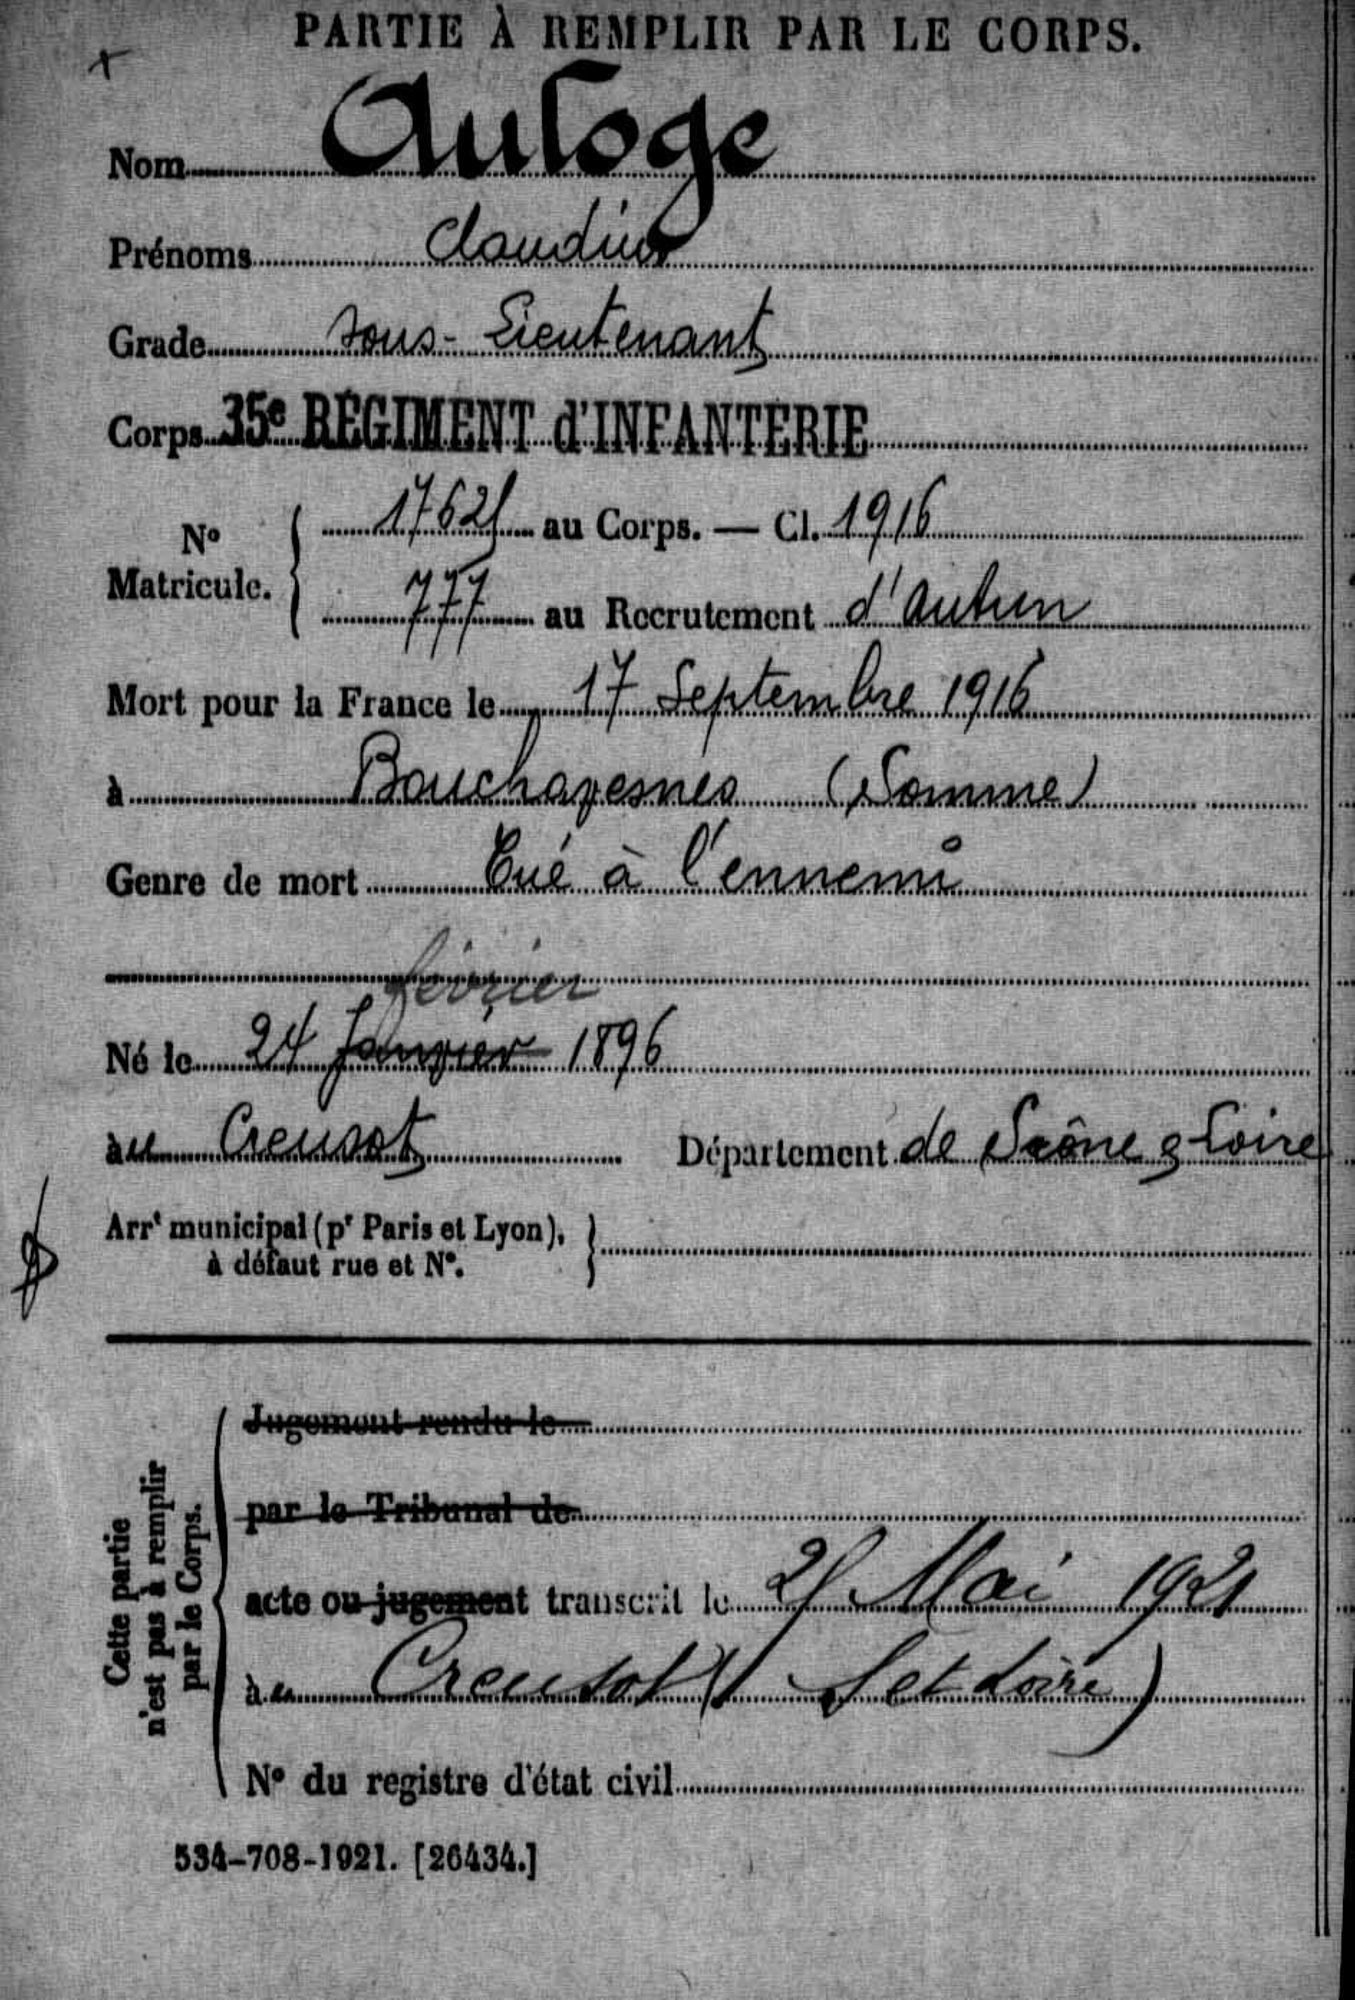 PARTIE À REMPLIR PAR LE CORPS.
Nom Auloge
Prénoms Claudius
Grade sous-Lieutenant
Corps 35e RÉGIMENT d'INFANTERIE
No Matricule. { 17621 au Corps. — Cl. 1916
777 au Recrutement d'Autun
Mort pour la France le 17 Septembre 1916
à Bouchavesnes (Somme)
Genre de mort Tué à l'ennemi
février
Né le 24 Janvier 1896
au Creusot Département de Saône & Loire
Arrt municipal (pr Paris et Lyon), }
à défaut rue et No.
Cette partie
n'est pas à remplir
par le Corps.
Jugement rendu le
par le Tribunal de
acte ou jugement transcrit le 21 Mai 1921
au Creusot (S et Loire)
No du registre d'état civil
534-708-1921. [26434.]